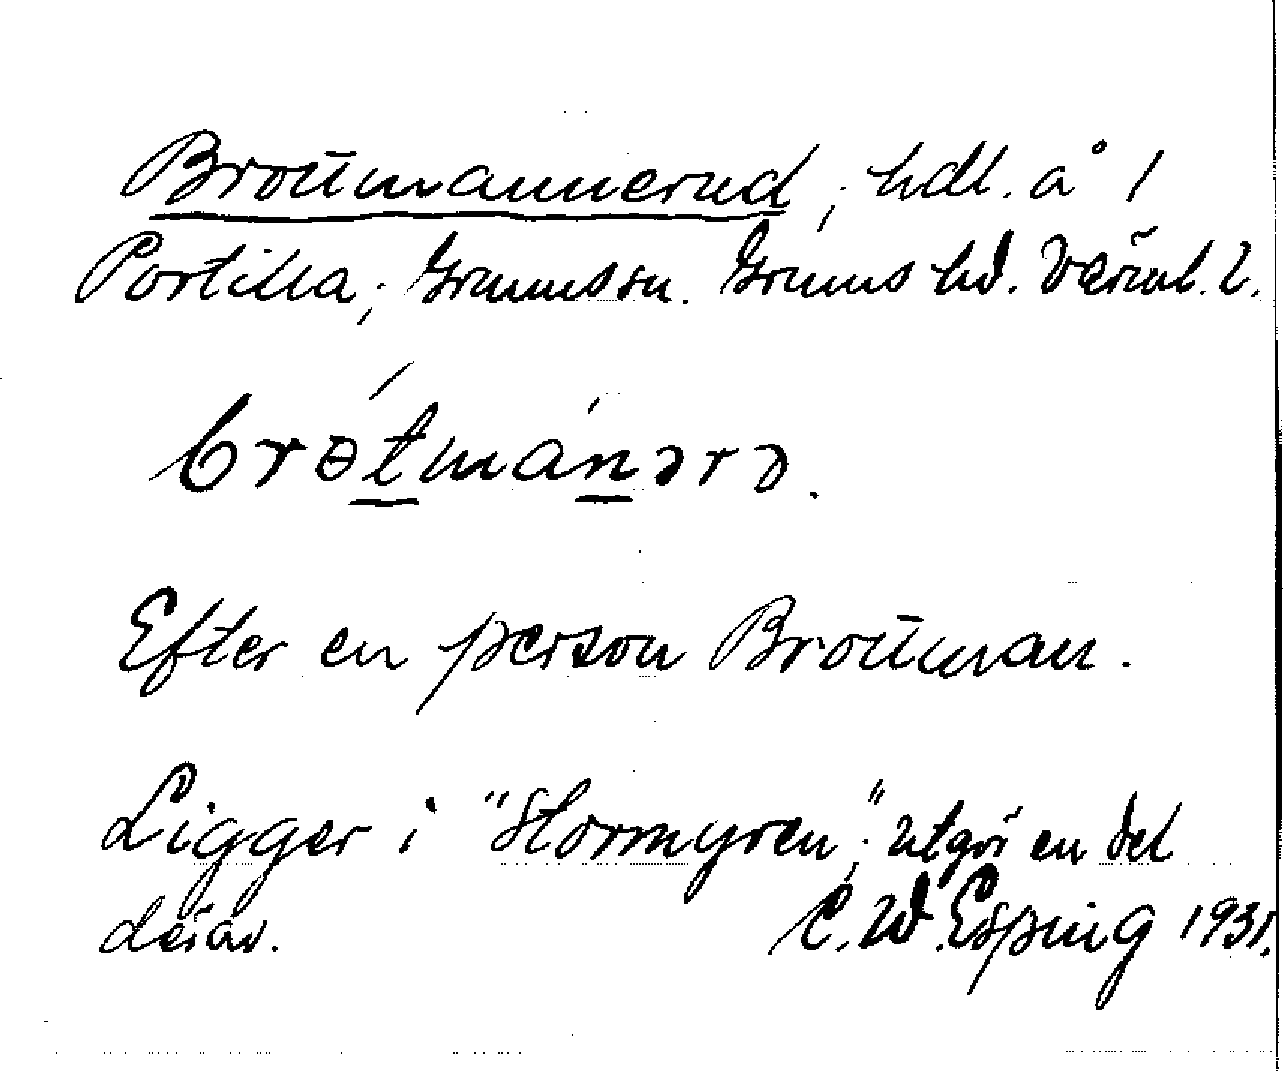 Brottmannerud; hdl. å 1
Portilla; Grums sn. Grums hd. Värml. l.
brɵ́tmánərə.
Efter en person Brottman.
Ligger i "Stormyren"; utgör en del
därav. C. W. Esping 1931.